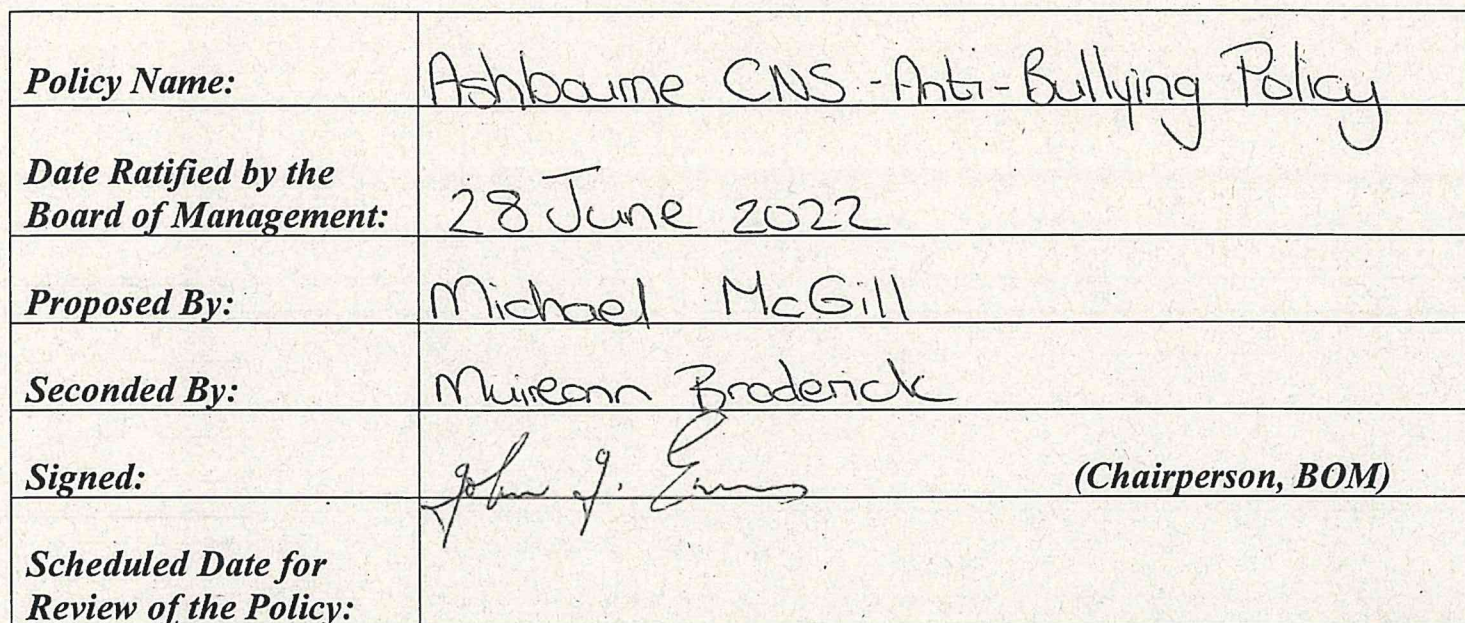 Policy Name: Ashbourne CNS - Anti-Bullying Policy
Date Ratified by the
Board of Management: 28 June 2022
Proposed By: Michael McGill
Seconded By: Muireann Broderick
Signed: John J. (Chairperson, BOM)
Scheduled Date for
Review of the Policy: